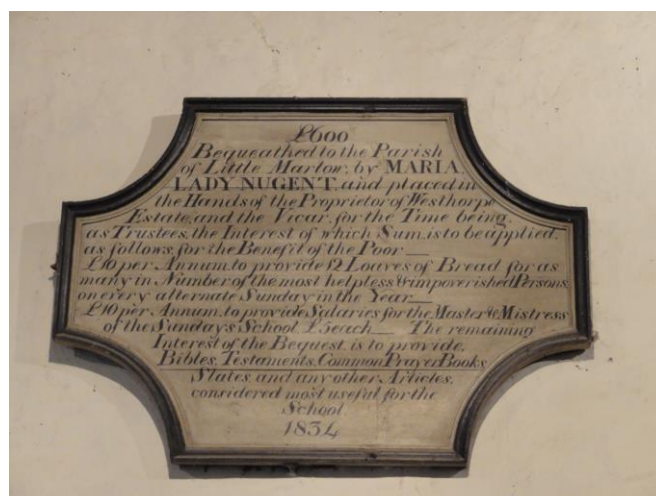 £600
Bequeathed to the Parish
of Little Marlow, by MARIA,
LADY NUGENT, and placed in
the Hands of the Proprietor of Westhorpe
Estate, and the Vicar, for the Time being,
as Trustees, the Interest of which Sum, is to be applied,
as follows, for the Benefit of the Poor—
£10 per Annum, to provide 12 Loaves of Bread for as
many in Number of the most helpless & impoverished Persons,
on every alternate Sunday in the Year—
£10 per Annum, to provide Salaries for the Master & Mistress
of the Sundays School, £5 each— The remaining
Interest of the Bequest, is to provide,
Bibles, Testaments, Common Prayer Books,
Slates, and any other Articles,
considered most useful for the
School.
1834